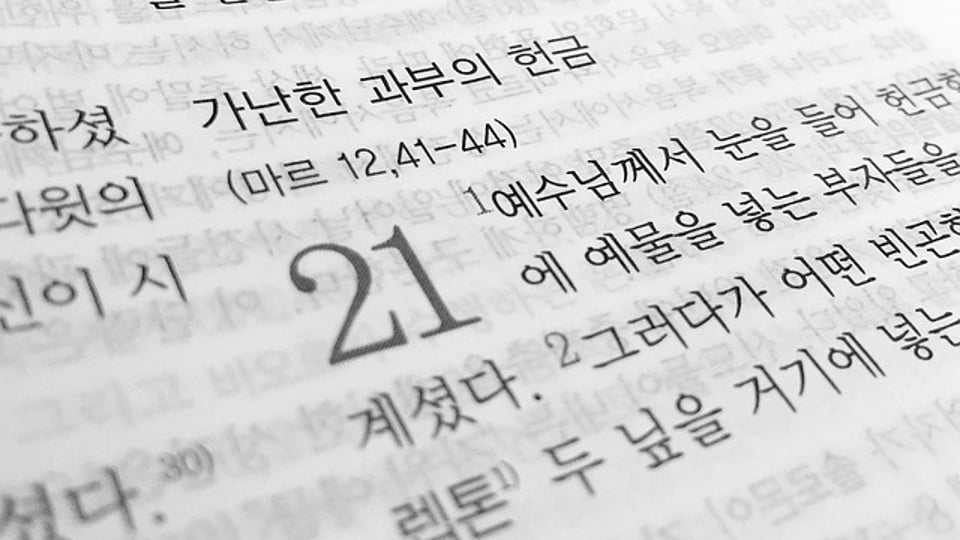 하셨
다윗의
신이 시
셨다.30)
가난한 과부의 헌금
(마르 12,41-44)
21 1예수님께서 눈을 들어 헌금
에 예물을 넣는 부자들을
계셨다. 2그러다가 어떤 빈곤한
렙톤1) 두 닢을 거기에 넣는